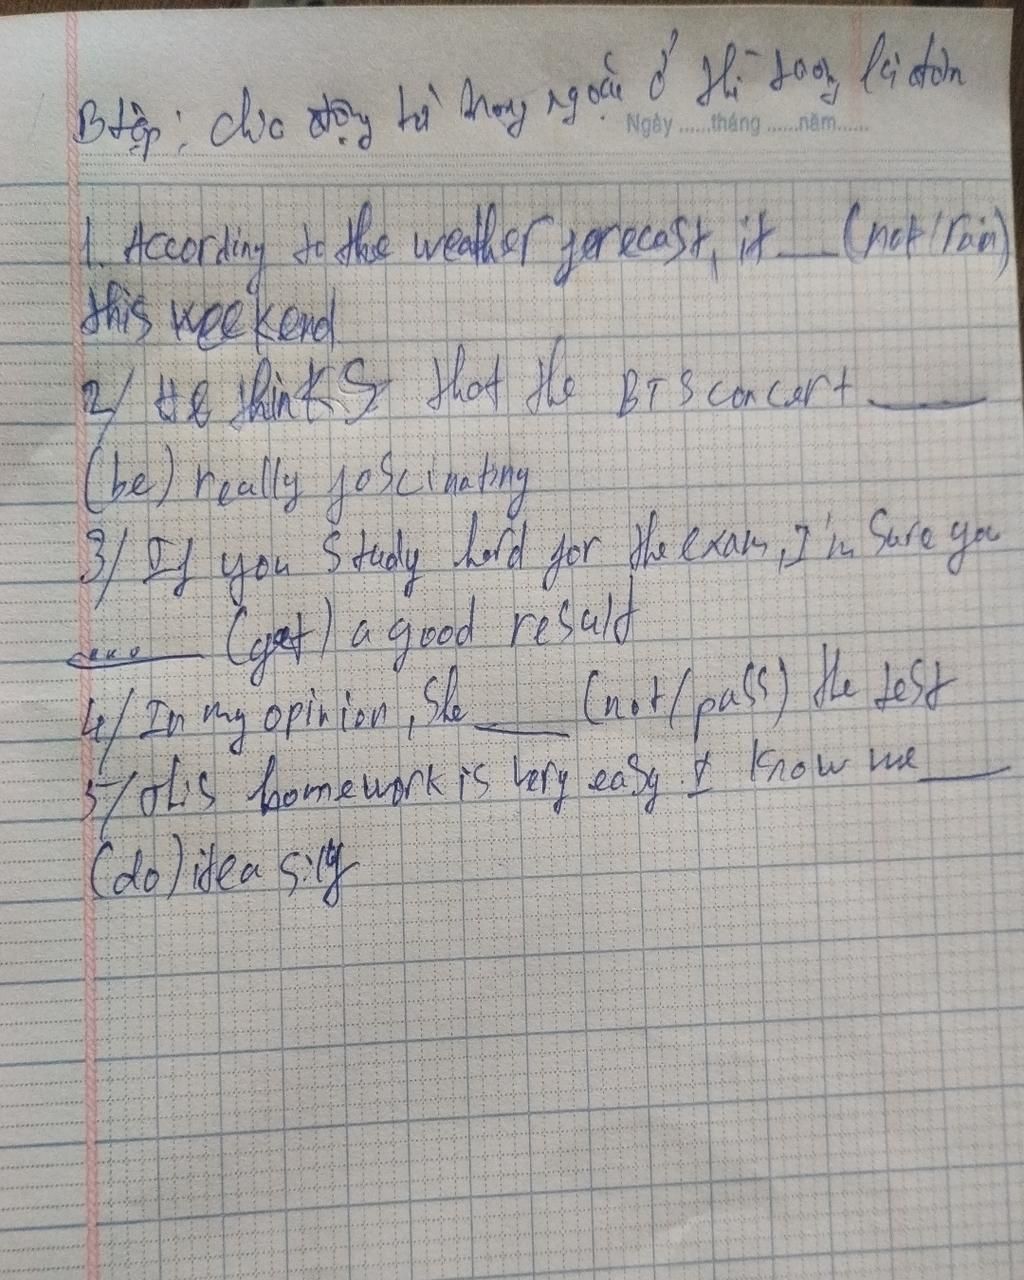 Btập: chia động từ trong ngoặc ở thì tương lai đơn
Ngày ......tháng ......năm......
1. According to the weather forecast, it ___ (not/rain)
this weekend
2/ He thinks that the BTS concert ____
(be) really fascinating
3/ If you study hard for the exam, I'm sure you
____ (get) a good result
4/ In my opinion, she ____ (not/pass) the test
5/ this homework is very easy. I know we ____
(do) it easily